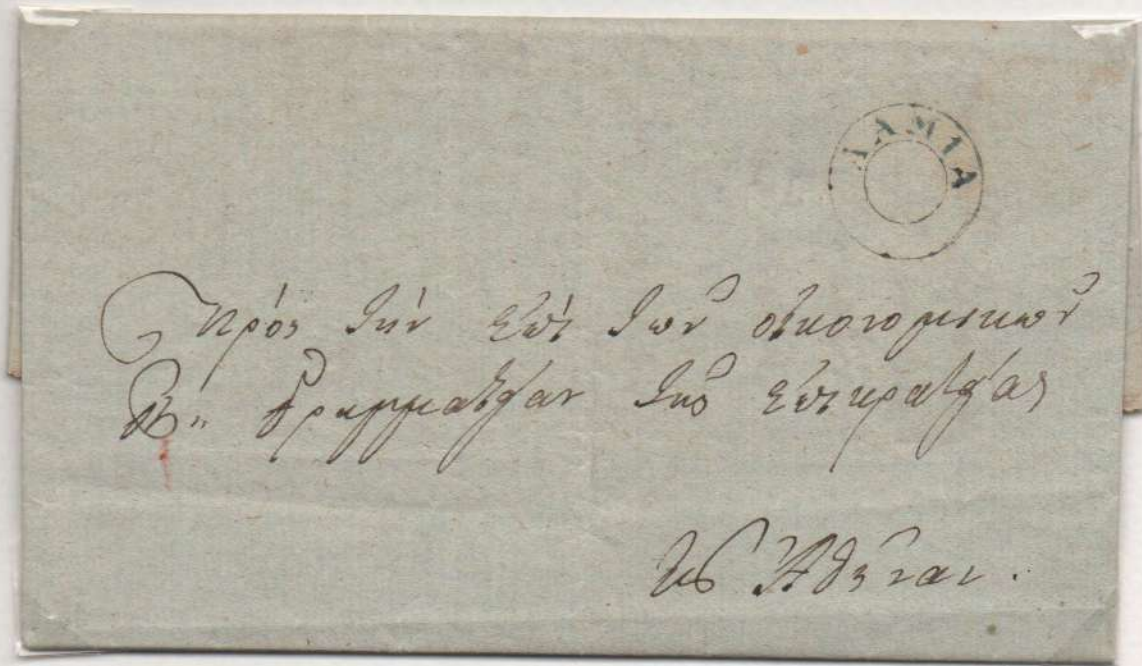 ΛΑΜΙΑ
Πρός τήν ἐπί τῶν οἰκονομικῶν
Β'' Γραμματείαν τῆς ἐπικρατείας
εἰς Ἀθήνας.